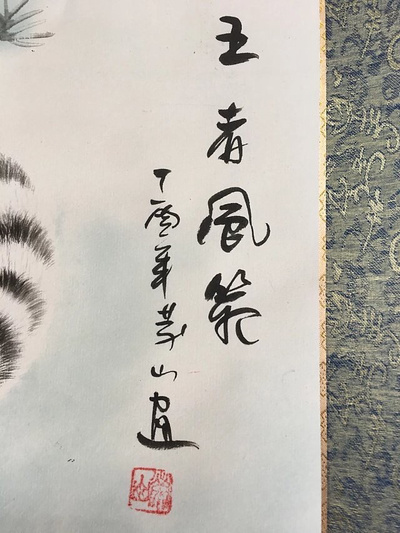 王者風範
丁酉年山画